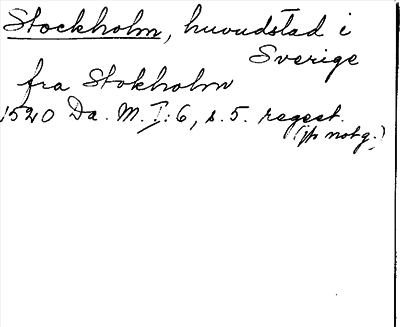 Stockholm, huvudstad i
Sverige
fra Stokholm
1520 Da. M. I: 6, s. 5. regest.
(jfr not g.)